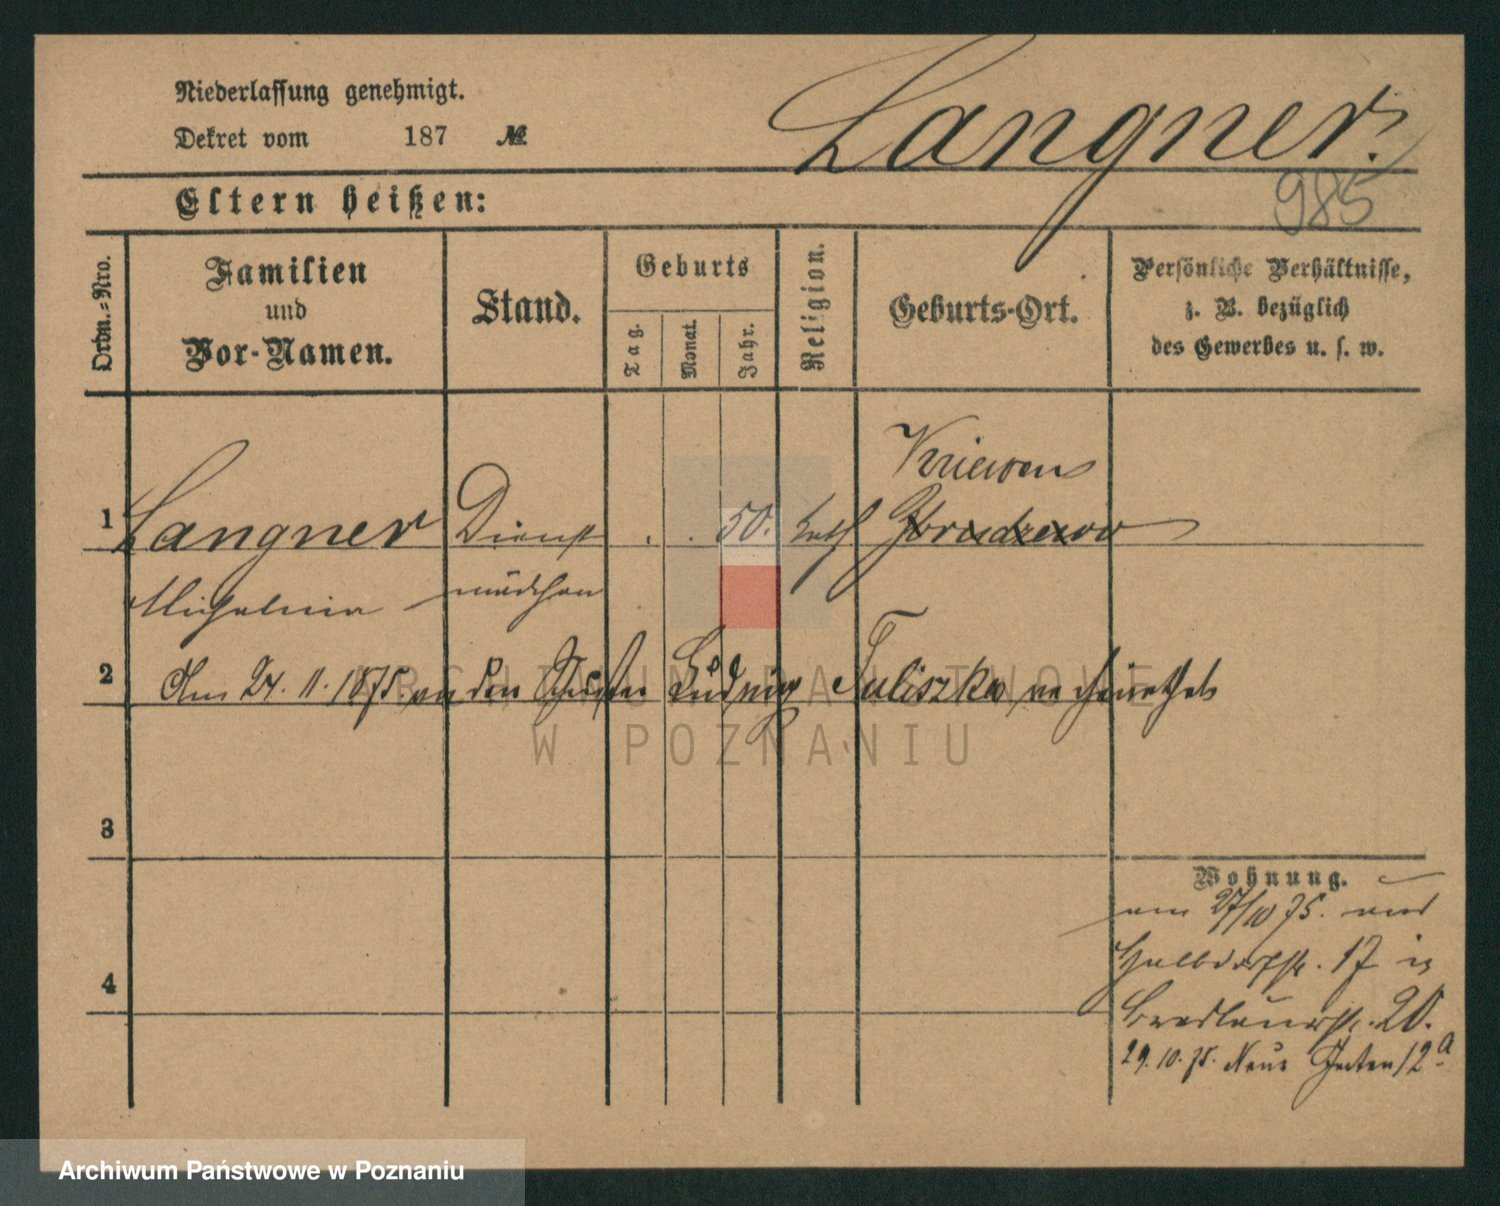 Niederlassung genehmigt.
Langner.
Dekret vom 187 №
985
Eltern heißen:
Ordn.-Nro.
Familien
und
Vor-Namen.
Stand.
Geburts
Tag.
Monat.
Jahr.
Religion.
Geburts-Ort.
Persönliche Verhältnisse,
z. B. bezüglich
des Gewerbes u. s. w.
Kriewen
1 Langner Dienst . . 50. kath
mädchen
2 Am 24. 11. 1875 an den Ludwig Tuliszka verheirathet
ARCHIWUM PAŃSTWOWE
W POZNANIU
3
Wohnung.
am 27/10 75. aus
Halbdorfstr. 17 in
4
Breslauerstr. 20.
29. 10. 75. Neue Garten 12a
Archiwum Państwowe w Poznaniu